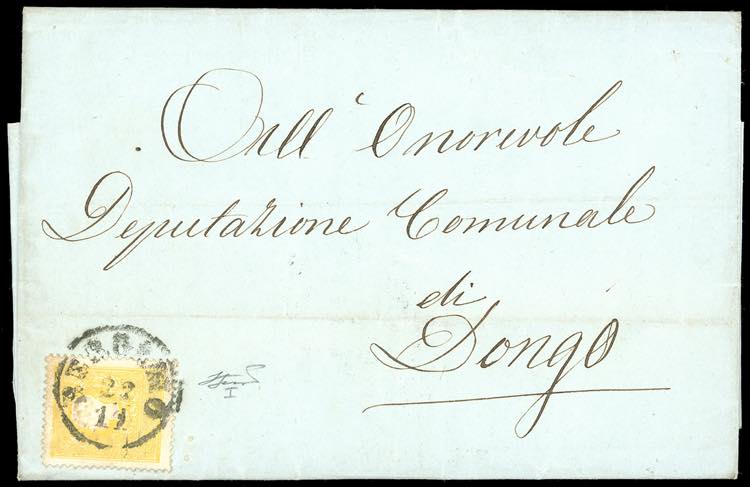 All' Onorevole
Deputazione Comunale
di
Dongo
BERGAMO
23
11
I